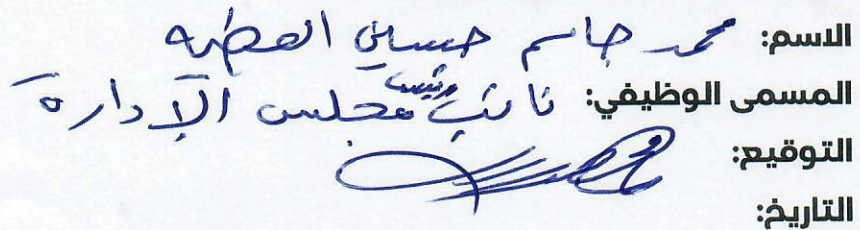 الاسم: محمد جاسم حسين العطيه
المسمى الوظيفي: نائب رئيس مجلس الإدارة
التوقيع:
التاريخ: